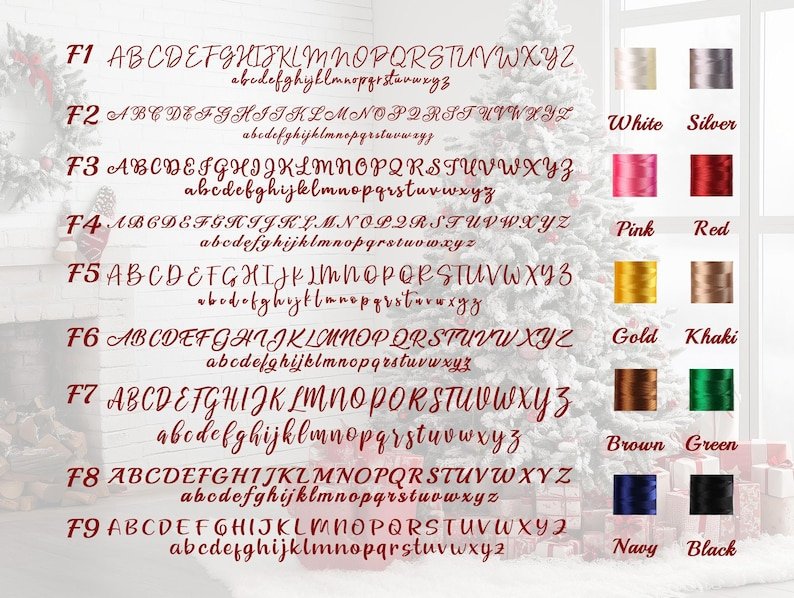 F1 ABCDEFGHIJKLMNOPQRSTUVWXYZ
abcdefghijklmnopqrstuvwxyz
F2 ABCDEFGHIJKLMNOPQRSTUVWXYZ
abcdefghijklmnopqrstuvwxyz
F3 ABCDEFGHIJKLMNOPQRSTUVWXYZ
abcdefghijklmnopqrstuvwxyz
F4 ABCDEFGHIJKLMNOPQRSTUVWXYZ
abcdefghijklmnopqrstuvwxyz
F5 ABCDEFGHIJKLMNOPQRSTUVWXYZ
abcdefghijklmnopqrstuvwxyz
F6 ABCDEFGHIJKLMNOPQRSTUVWXYZ
abcdefghijklmnopqrstuvwxyz
F7 ABCDEFGHIJKLMNOPQRSTUVWXYZ
abcdefghijklmnopqrstuvwxyz
F8 ABCDEFGHIJKLMNOPQRSTUVWXYZ
abcdefghijklmnopqrstuvwxyz
F9 ABCDEFGHIJKLMNOPQRSTUVWXYZ
abcdefghijklmnopqrstuvwxyz
White Silver
Pink Red
Gold Khaki
Brown Green
Navy Black